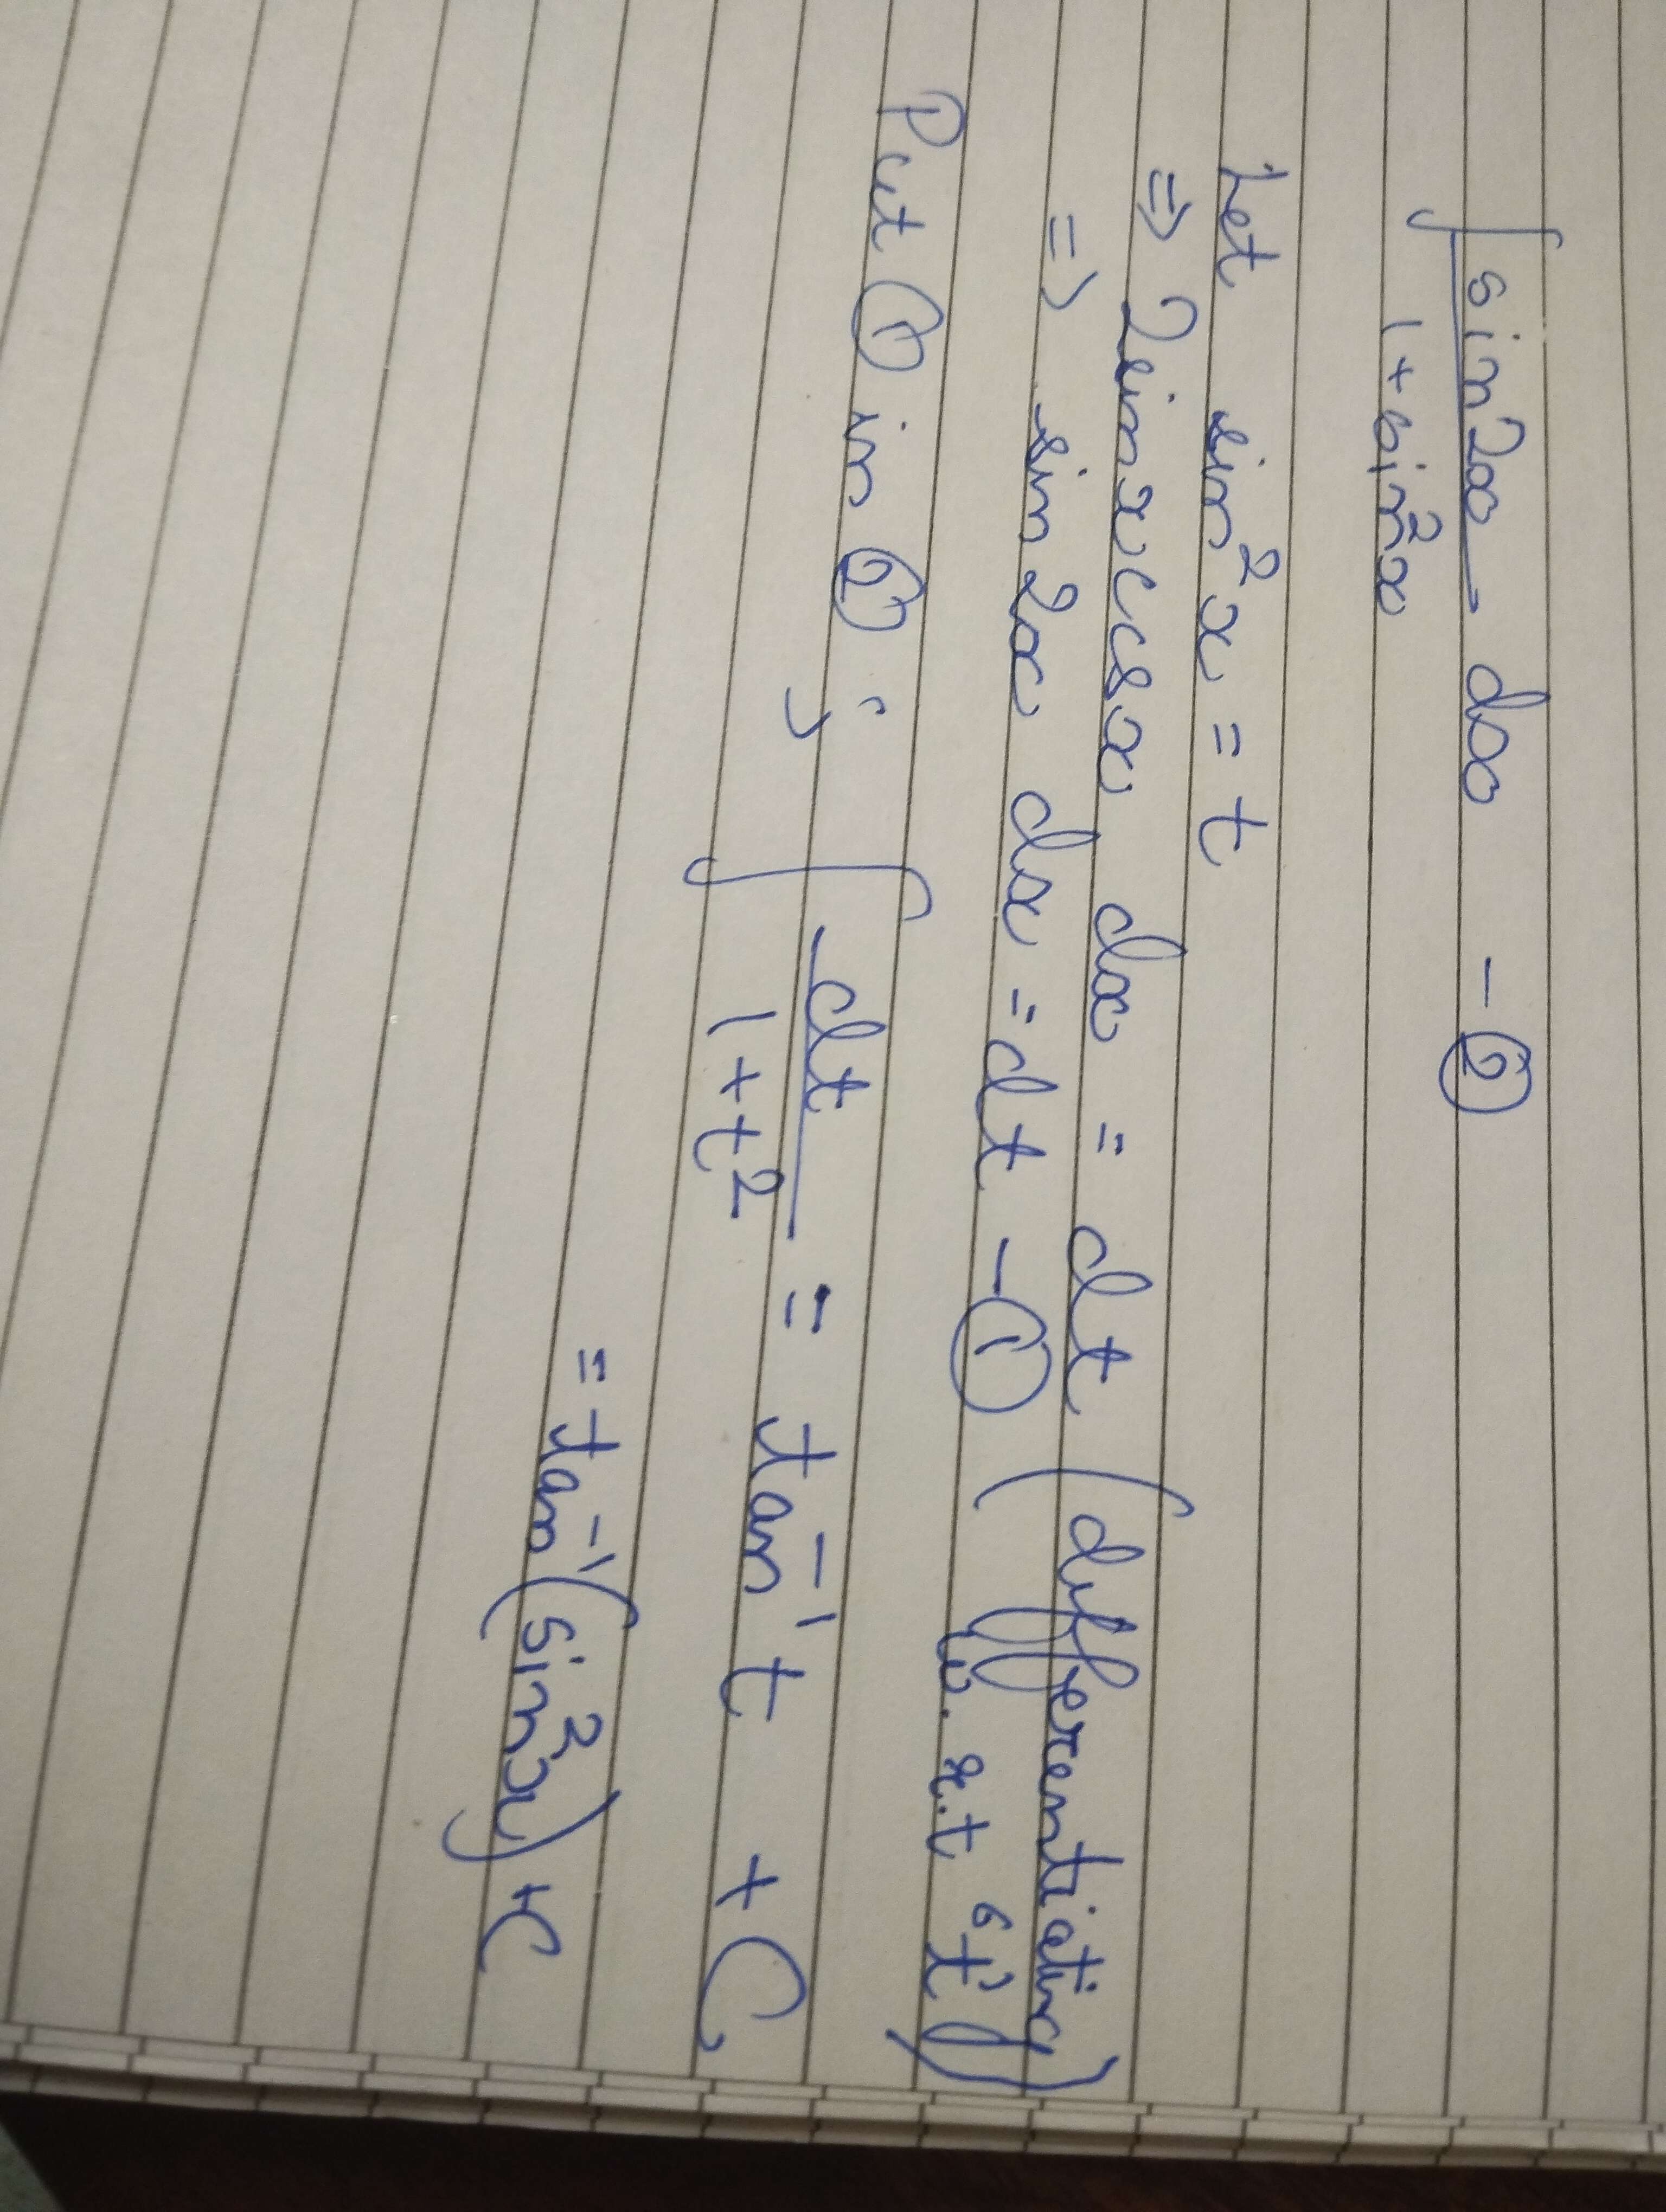 ∫ sin2x / 1+sin²x dx - ②
Let sin²x = t
=> 2sinxcosx dx = dt (differentiating
w.r.t 't')
=> sin2x dx = dt - ①
Put ① in ② ; ∫ dt / 1+t² = tan⁻¹t + C
= tan⁻¹(sin²x) + C